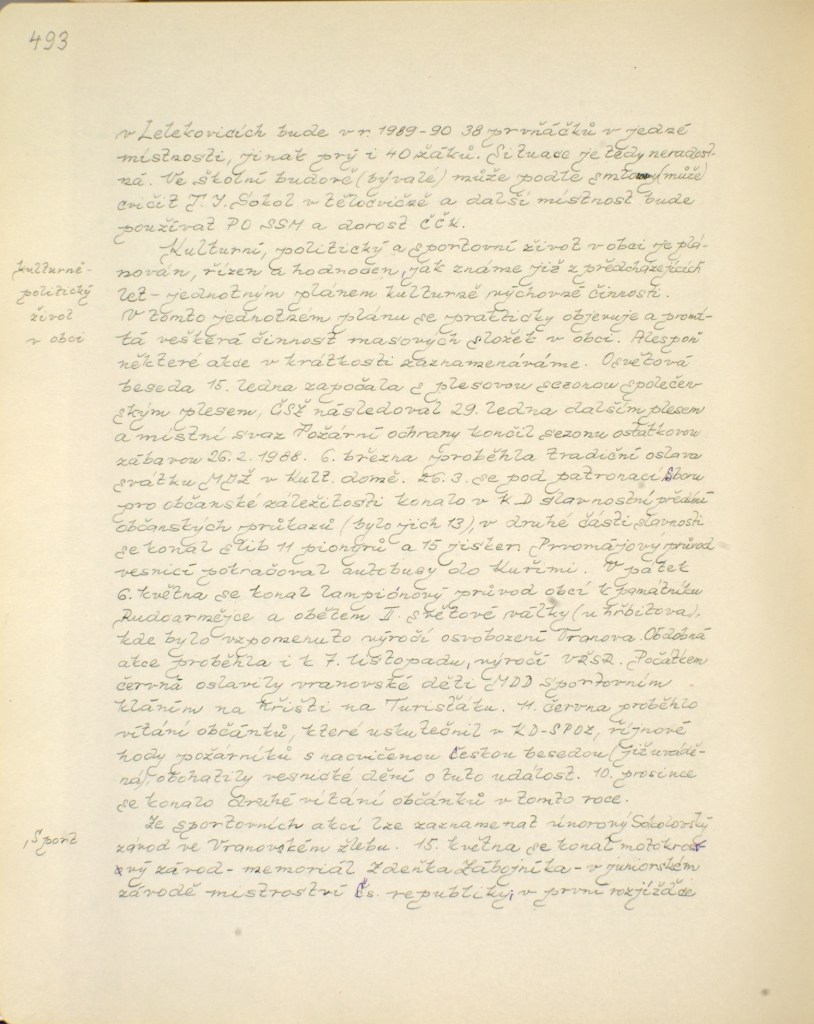 493
v Lelekovicích bude v r. 1989-90 38 prvňáčků v jedné
místnosti, jinak prý i 40 žáků. Situace je tedy neradost-
ná. Ve školní budově (bývalé) může podle smlouvy (může)
cvičit T. J. Sokol v tělocvičně a další místnost bude
používat PO SSM a dorost ČČK.
kulturně-
politický
život
v obci
Kulturní, politický a sportovní život v obci je plá-
nován, řízen a hodnocen, jak známe již z předcházejících
let - jednotným plánem kulturně výchovné činnosti.
V tomto jednotném plánu se prakticky objevuje a promí-
tá veškerá činnost masových složek v obci. Alespoň
některé akce v krátkosti zaznamenáváme. Osvětová
beseda 15. ledna započala s plesovou sezonou společen-
ským plesem, ČSŽ následoval 29. ledna dalším plesem
a místní svaz Požární ochrany končil sezonu ostatkovou
zábavou 26. 2. 1988. 6. března proběhla tradiční oslava
svátku MDŽ v kult. domě. 26. 3. se pod patronací Sboru
pro občanské záležitosti konalo v KD slavnostní předání
občanských průkazů (bylo jich 13), v druhé části slavnosti
se konal slib 11 pionýrů a 15 jisker. Prvomájový průvod
vesnicí pokračoval autobusy do Kuřimi. V pátek
6. května se konal lampiónový průvod obcí k památníku
Rudoarmějce a obětem II. světové války (u hřbitova),
kde bylo vzpomenuto výročí osvobození Vranova. Obdobná
akce proběhla i k 7. listopadu, výročí VŘSR. Počátkem
června oslavily vranovské děti MDD sportovním
kláním na hřišti na Turisťáku. 11. června proběhlo
vítání občánků, které uskutečnil v KD-SPOZ, říjnové
hody požárníků s nacvičenou Českou besedou (již uvádě-
ná), obohatily vesnické dění o tuto událost. 10. prosince
se konalo druhé vítání občánků v tomto roce.
Sport
Ze sportovních akcí lze zaznamenat únorový Sokolovský
závod ve Vranovském žlebu. 15. května se konal motokros-
ový závod - memoriál Zdeňka Zábojníka - v juniorském
závodě mistrovství Čs. republiky, v první rozjížďce